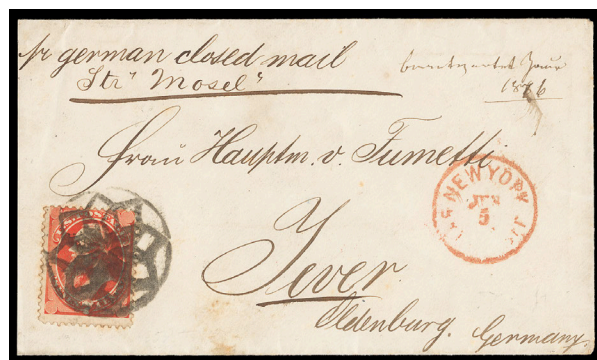 pr german closed mail
Str "Mosel"
1876
Frau Hauptm. v. Tumetti
NEW YORK
5
Jever
Oldenburg. Germany.